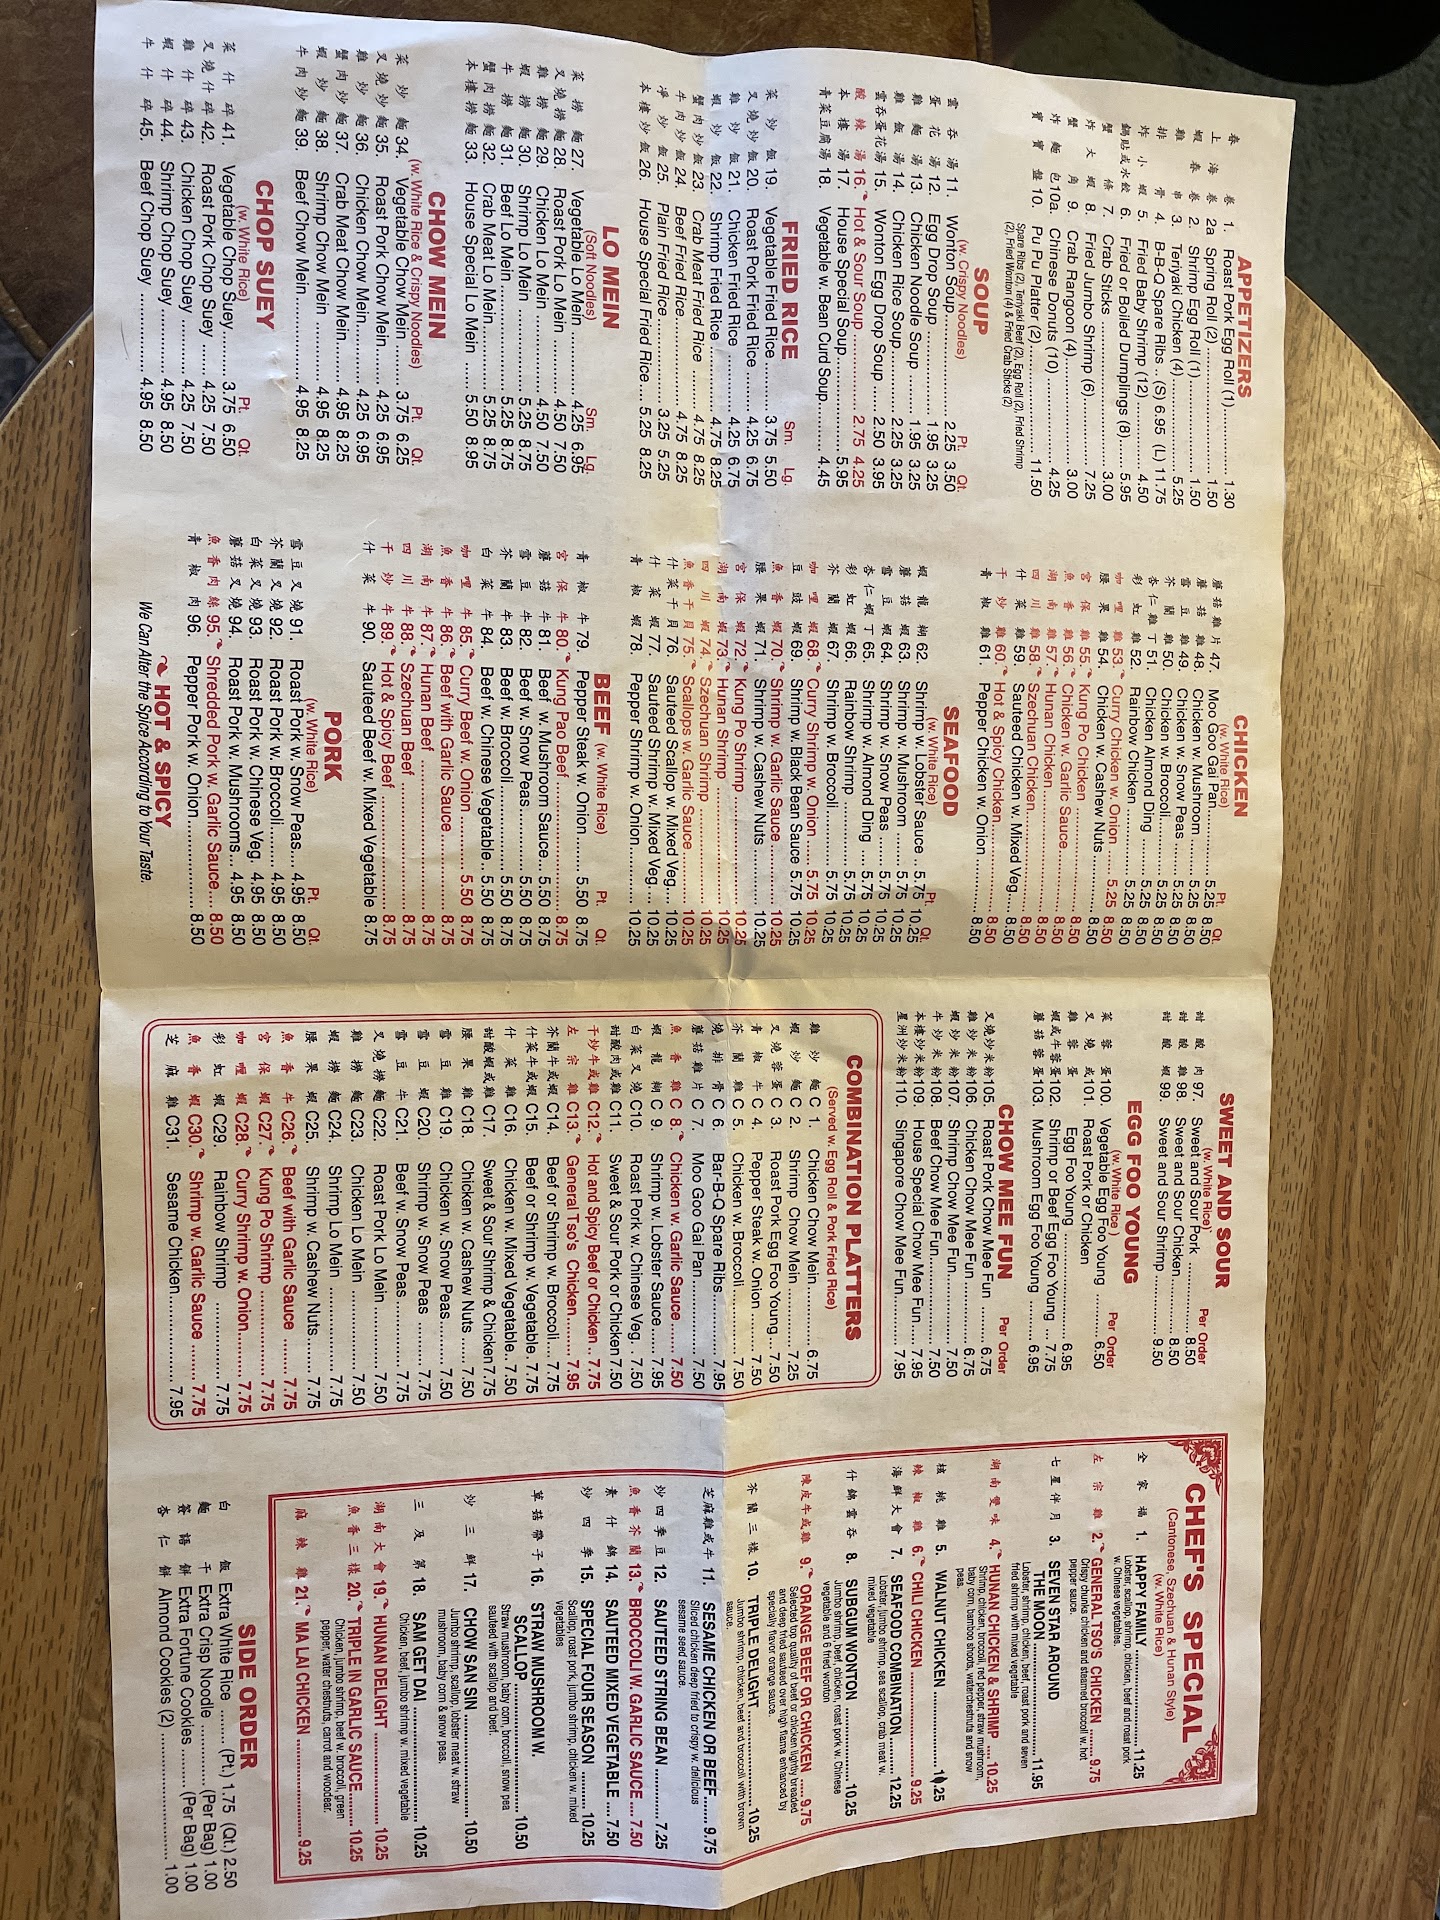 APPETIZERS
春 卷 1. Roast Pork Egg Roll (1) 1.30
上 海 卷 2a Spring Roll (2) 1.50
蝦 春 卷 2. Shrimp Egg Roll (1) 1.50
雞 串 3. Teriyaki Chicken (4) 5.25
排 骨 4. B-B-Q Spare Ribs .. (S) 6.95 (L) 11.75
炸 小 蝦 5. Fried Baby Shrimp (12) 4.50
鍋貼或水餃 6. Fried or Boiled Dumplings (8) 5.95
蟹 條 7. Crab Sticks 3.00
炸 大 蝦 8. Fried Jumbo Shrimp (6) 7.25
蟹 角 9. Crab Rangoon (4) 3.00
炸 麵 包10a. Chinese Donuts (10) 4.25
寶 寶 盤 10. Pu Pu Platter (2) 11.50
Spare Ribs (2), Teriyaki Beef (2), Egg Roll (2), Fried Shrimp
(2), Fried Wonton (4) & Fried Crab Sticks (2)
SOUP
(w. Crispy Noodles) Pt. Qt.
雲 吞 湯 11. Wonton Soup 2.25 3.50
蛋 花 湯 12. Egg Drop Soup 1.95 3.25
雞 麵 湯 13. Chicken Noodle Soup 1.95 3.25
雞 飯 湯 14. Chicken Rice Soup 2.25 3.25
雲吞蛋花湯 15. Wonton Egg Drop Soup 2.50 3.95
酸 辣 湯 16. Hot & Sour Soup 2.75 4.25
本 樓 湯 17. House Special Soup 5.95
青菜豆腐湯 18. Vegetable w. Bean Curd Soup 4.45
FRIED RICE
Sm. Lg.
菜 炒 飯 19. Vegetable Fried Rice 3.75 5.50
叉 燒 炒 飯 20. Roast Pork Fried Rice 4.25 6.75
雞 炒 飯 21. Chicken Fried Rice 4.25 6.75
蝦 炒 飯 22. Shrimp Fried Rice 4.75 8.25
蟹 肉 炒 飯 23. Crab Meat Fried Rice 4.75 8.25
牛 肉 炒 飯 24. Beef Fried Rice 4.75 8.25
淨 炒 飯 25. Plain Fried Rice 3.25 5.25
本 樓 炒 飯 26. House Special Fried Rice 5.25 8.25
LO MEIN
(Soft Noodles) Sm. Lg.
菜 撈 麵 27. Vegetable Lo Mein 4.25 6.95
叉 燒 撈 麵 28. Roast Pork Lo Mein 4.50 7.50
雞 撈 麵 29. Chicken Lo Mein 4.50 7.50
蝦 撈 麵 30. Shrimp Lo Mein 5.25 8.75
牛 撈 麵 31. Beef Lo Mein 5.25 8.75
蟹 肉 撈 麵 32. Crab Meat Lo Mein 5.25 8.75
本 樓 撈 麵 33. House Special Lo Mein 5.50 8.95
CHOW MEIN
(w. White Rice & Crispy Noodles) Pt. Qt.
菜 炒 麵 34. Vegetable Chow Mein 3.75 6.25
叉 燒 炒 麵 35. Roast Pork Chow Mein 4.25 6.95
雞 炒 麵 36. Chicken Chow Mein 4.25 6.95
蟹 肉 炒 麵 37. Crab Meat Chow Mein 4.95 8.25
蝦 炒 麵 38. Shrimp Chow Mein 4.95 8.25
牛 肉 炒 麵 39. Beef Chow Mein 4.95 8.25
CHOP SUEY
(w. White Rice) Pt. Qt.
菜 什 碎 41. Vegetable Chop Suey 3.75 6.50
叉 燒 什 碎 42. Roast Pork Chop Suey 4.25 7.50
雞 什 碎 43. Chicken Chop Suey 4.25 7.50
蝦 什 碎 44. Shrimp Chop Suey 4.95 8.50
牛 什 碎 45. Beef Chop Suey 4.95 8.50
CHICKEN
(w. White Rice) Pt. Qt.
蘑 菇 雞 片 47. Moo Goo Gai Pan 5.25 8.50
蘑 菇 雞 48. Chicken w. Mushroom 5.25 8.50
雪 豆 雞 49. Chicken w. Snow Peas 5.25 8.50
芥 蘭 雞 50. Chicken w. Broccoli 5.25 8.50
杏 仁 雞 丁 51. Chicken Almond Ding 5.25 8.50
彩 虹 雞 52. Rainbow Chicken 5.25 8.50
咖 喱 雞 53. Curry Chicken w. Onion 5.25 8.50
腰 果 雞 54. Chicken w. Cashew Nuts 8.50
宮 保 雞 55. Kung Po Chicken 8.50
魚 香 雞 56. Chicken w. Garlic Sauce 8.50
湖 南 雞 57. Hunan Chicken 8.50
四 川 雞 58. Szechuan Chicken 8.50
什 菜 雞 59. Sauteed Chicken w. Mixed Veg. 8.50
干 炒 雞 60. Hot & Spicy Chicken 8.50
青 椒 雞 61. Pepper Chicken w. Onion 8.50
SEAFOOD
(w. White Rice) Pt. Qt.
蝦 龍 糊 62. Shrimp w. Lobster Sauce 5.75 10.25
蘑 菇 蝦 63. Shrimp w. Mushroom 5.75 10.25
雪 豆 蝦 64. Shrimp w. Snow Peas 5.75 10.25
杏 仁 蝦 丁 65. Shrimp w. Almond Ding 5.75 10.25
彩 虹 蝦 66. Rainbow Shrimp 5.75 10.25
芥 蘭 蝦 67. Shrimp w. Broccoli 5.75 10.25
咖 喱 蝦 68. Curry Shrimp w. Onion 5.75 10.25
豆 豉 蝦 69. Shrimp w. Black Bean Sauce 5.75 10.25
魚 香 蝦 70. Shrimp w. Garlic Sauce 10.25
腰 果 蝦 71. Shrimp w. Cashew Nuts 10.25
宮 保 蝦 72. Kung Po Shrimp 10.25
湖 南 蝦 73. Hunan Shrimp 10.25
四 川 蝦 74. Szechuan Shrimp 10.25
魚 香 干 貝 75. Scallops w. Garlic Sauce 10.25
什 菜 干 貝 76. Sauteed Scallop w. Mixed Veg. 10.25
什 菜 蝦 77. Sauteed Shrimp w. Mixed Veg. 10.25
青 椒 蝦 78. Pepper Shrimp w. Onion 10.25
BEEF (w. White Rice) Pt. Qt.
青 椒 牛 79. Pepper Steak w. Onion 5.50 8.75
宮 保 牛 80. Kung Pao Beef 8.75
蘑 菇 牛 81. Beef w. Mushroom Sauce 5.50 8.75
雪 豆 牛 82. Beef w. Snow Peas 5.50 8.75
芥 蘭 牛 83. Beef w. Broccoli 5.50 8.75
白 菜 牛 84. Beef w. Chinese Vegetable 5.50 8.75
咖 喱 牛 85. Curry Beef w. Onion 5.50 8.75
魚 香 牛 86. Beef with Garlic Sauce 8.75
湖 南 牛 87. Hunan Beef 8.75
四 川 牛 88. Szechuan Beef 8.75
干 炒 牛 89. Hot & Spicy Beef 8.75
什 菜 牛 90. Sauteed Beef w. Mixed Vegetable 8.75
PORK
(w. White Rice) Pt. Qt.
雪 豆 叉 燒 91. Roast Pork w. Snow Peas 4.95 8.50
芥 蘭 叉 燒 92. Roast Pork w. Broccoli 4.95 8.50
白 菜 叉 燒 93. Roast Pork w. Chinese Veg. 4.95 8.50
蘑 菇 叉 燒 94. Roast Pork w. Mushrooms 4.95 8.50
魚 香 肉 絲 95. Shredded Pork w. Garlic Sauce 8.50
青 椒 肉 96. Pepper Pork w. Onion 8.50
HOT & SPICY
We Can Alter the Spice According to Your Taste.
SWEET AND SOUR
(w. White Rice) Per Order
甜 酸 肉 97. Sweet and Sour Pork 8.50
甜 酸 雞 98. Sweet and Sour Chicken 8.50
甜 酸 蝦 99. Sweet and Sour Shrimp 9.50
EGG FOO YOUNG
(w. White Rice) Per Order
菜 蓉 蛋100. Vegetable Egg Foo Young 6.50
叉 燒 或101. Roast Pork or Chicken
雞 蓉 蛋 Egg Foo Young 6.95
蝦或牛蓉蛋102. Shrimp or Beef Egg Foo Young 7.75
蘑 菇 蓉 蛋103. Mushroom Egg Foo Young 6.95
CHOW MEE FUN Per Order
叉燒炒米粉105. Roast Pork Chow Mee Fun 6.75
雞炒米粉106. Chicken Chow Mee Fun 6.75
蝦炒米粉107. Shrimp Chow Mee Fun 7.50
牛炒米粉108. Beef Chow Mee Fun 7.50
本樓炒米粉109. House Special Chow Mee Fun 7.95
星洲炒米粉110. Singapore Chow Mee Fun 7.95
COMBINATION PLATTERS
(Served w. Egg Roll & Pork Fried Rice)
雞 炒 麵 C 1. Chicken Chow Mein 6.75
蝦 炒 麵 C 2. Shrimp Chow Mein 7.25
叉 燒 蓉 蛋 C 3. Roast Pork Egg Foo Young 7.50
青 椒 牛 C 4. Pepper Steak w. Onion 7.50
芥 蘭 雞 C 5. Chicken w. Broccoli 7.50
燒 排 骨 C 6. Bar-B-Q Spare Ribs 7.95
蘑 菇 雞 片 C 7. Moo Goo Gai Pan 7.50
魚 香 雞 C 8. Chicken w. Garlic Sauce 7.50
蝦 龍 糊 C 9. Shrimp w. Lobster Sauce 7.95
白 菜 叉 燒 C10. Roast Pork w. Chinese Veg. 7.50
甜酸肉或雞 C11. Sweet & Sour Pork or Chicken 7.50
干炒牛或雞 C12. Hot and Spicy Beef or Chicken 7.75
左 宗 雞 C13. General Tso's Chicken 7.95
芥蘭牛或蝦 C14. Beef or Shrimp w. Broccoli 7.75
什菜牛或蝦 C15. Beef or Shrimp w. Vegetable 7.75
什 菜 雞 C16. Chicken w. Mixed Vegetable 7.50
甜酸蝦或雞 C17. Sweet & Sour Shrimp & Chicken 7.75
腰 果 雞 C18. Chicken w. Cashew Nuts 7.50
雪 豆 雞 C19. Chicken w. Snow Peas 7.50
雪 豆 蝦 C20. Shrimp w. Snow Peas 7.75
雪 豆 牛 C21. Beef w. Snow Peas 7.75
叉 燒 撈 麵 C22. Roast Pork Lo Mein 7.50
雞 撈 麵 C23. Chicken Lo Mein 7.50
蝦 撈 麵 C24. Shrimp Lo Mein 7.75
腰 果 蝦 C25. Shrimp w. Cashew Nuts 7.75
魚 香 牛 C26. Beef with Garlic Sauce 7.75
宮 保 蝦 C27. Kung Po Shrimp 7.75
咖 喱 蝦 C28. Curry Shrimp w. Onion 7.75
彩 虹 蝦 C29. Rainbow Shrimp 7.75
魚 香 蝦 C30. Shrimp w. Garlic Sauce 7.75
芝 麻 雞 C31. Sesame Chicken 7.95
CHEF'S SPECIAL
(Cantonese, Szechuan & Hunan Style)
(w. White Rice)
全 家 福 1. HAPPY FAMILY 11.25
Lobster, scallop, shrimp, chicken, beef and roast pork
w. Chinese vegetables.
左 宗 雞 2. GENERAL TSO'S CHICKEN 9.75
Crispy chunks chicken and steamed broccoli w. hot
pepper sauce.
七 星 伴 月 3. SEVEN STAR AROUND
THE MOON 11.95
Lobster, shrimp, chicken, beef, roast pork and seven
fried shrimp with mixed vegetable
湖 南 雙 味 4. HUNAN CHICKEN & SHRIMP 10.25
Shrimp, chicken, broccoli, red pepper, straw mushroom,
baby corn, bamboo shoots, waterchestnuts and snow
peas.
核 桃 雞 5. WALNUT CHICKEN 10.25
辣 椒 雞 6. CHILI CHICKEN 9.25
海 鮮 大 會 7. SEAFOOD COMBINATION 12.25
Lobster, jumbo shrimp, sea scallop, crab meat w.
mixed vegetable
什 錦 雲 吞 8. SUBGUM WONTON 10.25
Jumbo shrimp, beef, chicken, roast pork w. Chinese
vegetable and 6 fried wonton
陳皮牛或雞 9. ORANGE BEEF OR CHICKEN 9.75
Selected top quality of beef or chicken lightly breaded
and deep fried sauteed over high flame enhanced by
specially flavor orange sauce.
芥 蘭 三 樣 10. TRIPLE DELIGHT 10.25
Jumbo shrimp, chicken, beef and broccoli with brown
sauce.
芝麻雞或牛 11. SESAME CHICKEN OR BEEF 9.75
Sliced chicken deep fried to crispy w. delicious
sesame seed sauce.
炒 四 季 豆 12. SAUTEED STRING BEAN 7.25
魚 香 芥 蘭 13. BROCCOLI W. GARLIC SAUCE 7.50
素 什 錦 14. SAUTEED MIXED VEGETABLE 7.50
炒 四 季 15. SPECIAL FOUR SEASON 10.25
Scallop, roast pork, jumbo shrimp, chicken w. mixed
vegetables
草 菇 帶 子 16. STRAW MUSHROOM W.
SCALLOP 10.50
Straw mushroom, baby corn, broccoli, snow pea
sauteed with scallop and beef.
炒 三 鮮 17. CHOW SAN SIN 10.50
Jumbo shrimp, scallop, lobster meat w. straw
mushroom, baby corn & snow peas
三 及 第 18. SAM GET DAI 10.25
Chicken, beef, jumbo shrimp w. mixed vegetable
湖 南 大 會 19. HUNAN DELIGHT 10.25
魚 香 三 樣 20. TRIPLE IN GARLIC SAUCE 10.25
Chicken, jumbo shrimp, beef w. broccoli, green
pepper, water chestnuts, carrot and woodear.
麻 辣 雞 21. MA LAI CHICKEN 9.25
SIDE ORDER
白 飯 Extra White Rice (Pt.) 1.75 (Qt.) 2.50
麵 干 Extra Crisp Noodle (Per Bag) 1.00
簽 語 餅 Extra Fortune Cookies (Per Bag) 1.00
杏 仁 餅 Almond Cookies (2) 1.00